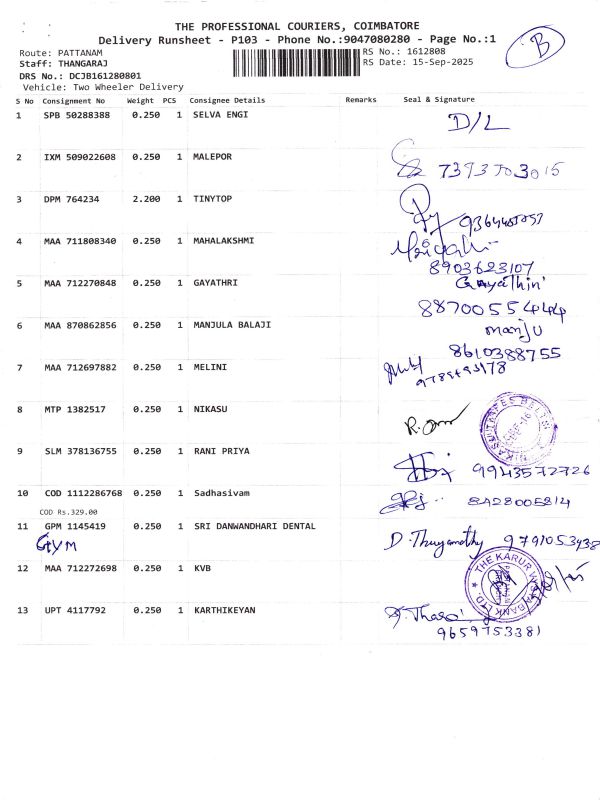 THE PROFESSIONAL COURIERS, COIMBATORE
Delivery Runsheet - P103 - Phone No.:9047080280 - Page No.:1
B
Route: PATTANAM
RS No.: 1612808
Staff: THANGARAJ
RS Date: 15-Sep-2025
DRS No.: DCJB161280801
Vehicle: Two Wheeler Delivery
S No Consignment No Weight PCS Consignee Details Remarks Seal & Signature
1 SPB 50288388 0.250 1 SELVA ENGI D/L
2 IXM 509022608 0.250 1 MALEPOR
3 DPM 764234 2.200 1 TINYTOP
4 MAA 711808340 0.250 1 MAHALAKSHMI
8903623107
5 MAA 712270848 0.250 1 GAYATHRI
8870055444
6 MAA 870862856 0.250 1 MANJULA BALAJI manju
8610388755
7 MAA 712697882 0.250 1 MELINI
8 MTP 1382517 0.250 1 NIKASU
9 SLM 378136755 0.250 1 RANI PRIYA 9943572726
10 COD 1112286768 0.250 1 Sadhasivam 8428005814
COD Rs.329.00
11 GPM 1145419 0.250 1 SRI DANWANDHARI DENTAL
GYM
12 MAA 712272698 0.250 1 KVB THE KARUR BANK LTD.
13 UPT 4117792 0.250 1 KARTHIKEYAN
9659753381